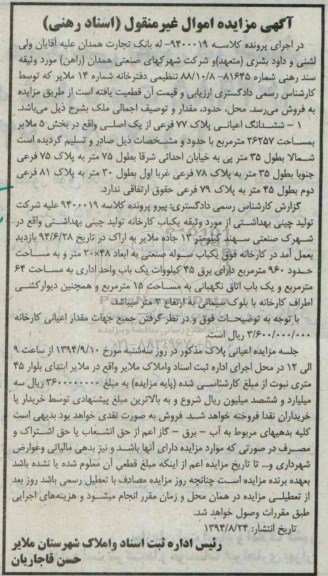 آگهی مزایده اموال غیرمنقول (اسناد رهنی)
در اجرای پرونده کلاسه ۹۴۰۰۰۱۹- له بانک تجارت همدان علیه آقایان ولی
لشنی و داود بشری (متعهد)و شرکت شهرکهای صنعتی همدان (راهن) مورد وثیقه
سند رهنی شماره ۸۱۶۴۵- ۸۸/۱۰/۸ تنظیمی دفترخانه شماره ۱۴ ملایر که توسط
کارشناس رسمی دادگستری ارزیابی و قیمت آن قطعیت یافته است از طریق مزایده
به فروش می‌رسد. محل، حدود، مقدار و توصیف اجمالی ملک بشرح ذیل می‌باشد.
۱ – ششدانگ اعیانی پلاک ۷۷ فرعی از یک اصلی واقع در بخش ۵ ملایر
بمساحت ۲۶۲۵۷ مترمربع با حدود و مشخصات ذیل صادر و تسلیم گردیده است
شمالا بطول ۳۵ متر پی به خیابان احداثی شرقا بطول ۷۵ متر به پلاک ۷۵ فرعی
جنوبا بطول ۳۵ متر به پلاک ۷۸ فرعی غربا اول بطول ۳۰ متر به پلاک ۸۱ فرعی
دوم بطول ۴۵ متر به پلاک ۷۹ فرعی حقوق ارتفاقی ندارد.
گزارش کارشناس رسمی دادگستری: پیرو پرونده کلاسه ۹۴۰۰۰۱۹ علیه شرکت
تولید چینی بهداشتی از مورد وثیقه یکباب کارخانه تولید چینی بهداشتی واقع در
شهرک صنعتی سهند کیلومتر ۱۳ جاده ملایر به اراک در تاریخ ۹۴/۶/۲۸ بازدید
بعمل آمد در کارخانه فوق یکباب سوله صنعتی به ابعاد ۴۸×۲۰ متر و به مساحت
حدود ۹۶۰ مترمربع دارای برق ۴۵ کیلووات یک باب واحد اداری به مساحت ۶۴
مترمربع و یک باب اتاق نگهبانی به مساحت ۱۵ مترمربع و همچنین دیوارکشی
اطراف کارخانه با بلوک سیمانی به ارتفاع ۲ متر میباشد
با توجه به توضیحات فوق و در نظر گرفتن جمیع جهات مقدار اعیانی کارخانه
۳/۶۰۰/۰۰۰/۰۰۰ ریال است
جلسه مزایده اعیانی پلاک مذکور در روز سه‌شنبه مورخ ۱۳۹۴/۹/۱۰ از ساعت ۹
الی ۱۲ در محل اجرای اداره ثبت اسناد واملاک ملایر واقع در ملایر ابتدای بلوار ۴۵
متری نبوت از مبلغ کارشناسی شده (پایه مزایده) به مبلغ ۳۶۰۰۰۰۰۰۰۰ ریال سه
میلیارد و ششصد میلیون ریال شروع و به بالاترین مبلغ پیشنهادی توسط خریدار یا
خریداران نقدا فروخته خواهد شد. فروش به صورت نقدی خواهد بود بدیهی است
کلیه بدهیهای مربوط به آب – برق – گاز اعم از حق انشعاب یا حق اشتراک و
مصرف در صورتی که موارد مزایده دارای آنها باشد و نیز بدهی مالیاتی وعوارض
شهرداری و... تا تاریخ مزایده اعم از اینکه مبلغ قطعی آن معلوم یا نشده باشد
بعهده برنده مزایده است چنانچه روز مزایده مصادف با تعطیل رسمی باشد روز بعد
از تعطیلی مزایده در همان محل و زمان مقرر انجام میشود و هزینه‌های اجرایی
طبق مقررات وصول خواهد شد.
تاریخ انتشار: ۱۳۹۴/۸/۲۴
رئیس اداره ثبت اسناد واملاک شهرستان ملایر
حسن قاجاریان